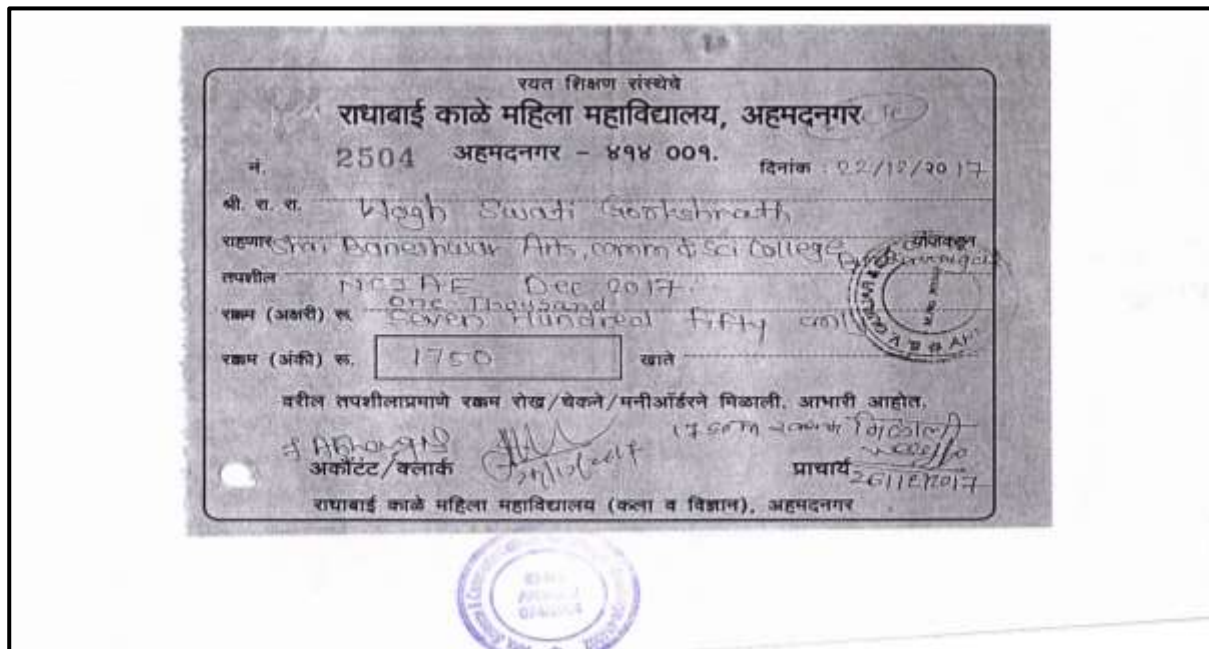 रयत शिक्षण संस्थेचे
राधाबाई काळे महिला महाविद्यालय, अहमदनगर
नं. 2504 अहमदनगर - ४१४ 001. दिनांक : 22/12/2017
श्री. रा. रा. Wagh Swati Gorkshnath
राहणार Shri Baneshwar Arts, comm & Sci College यांजकडून
तपशील Dec 2017.
One Thousand
रक्कम (अक्षरी) रू. Seven Hundred Fifty only
रक्कम (अंकी) रू. 1750 खाते
वरील तपशीलाप्रमाणे रक्कम रोख/चेकने/मनीऑर्डरने मिळाली. आभारी आहोत.
रक्कम मिळाली
अकौंटंट/क्लार्क प्राचार्य 26/12/2017
राधाबाई काळे महिला महाविद्यालय (कला व विज्ञान), अहमदनगर